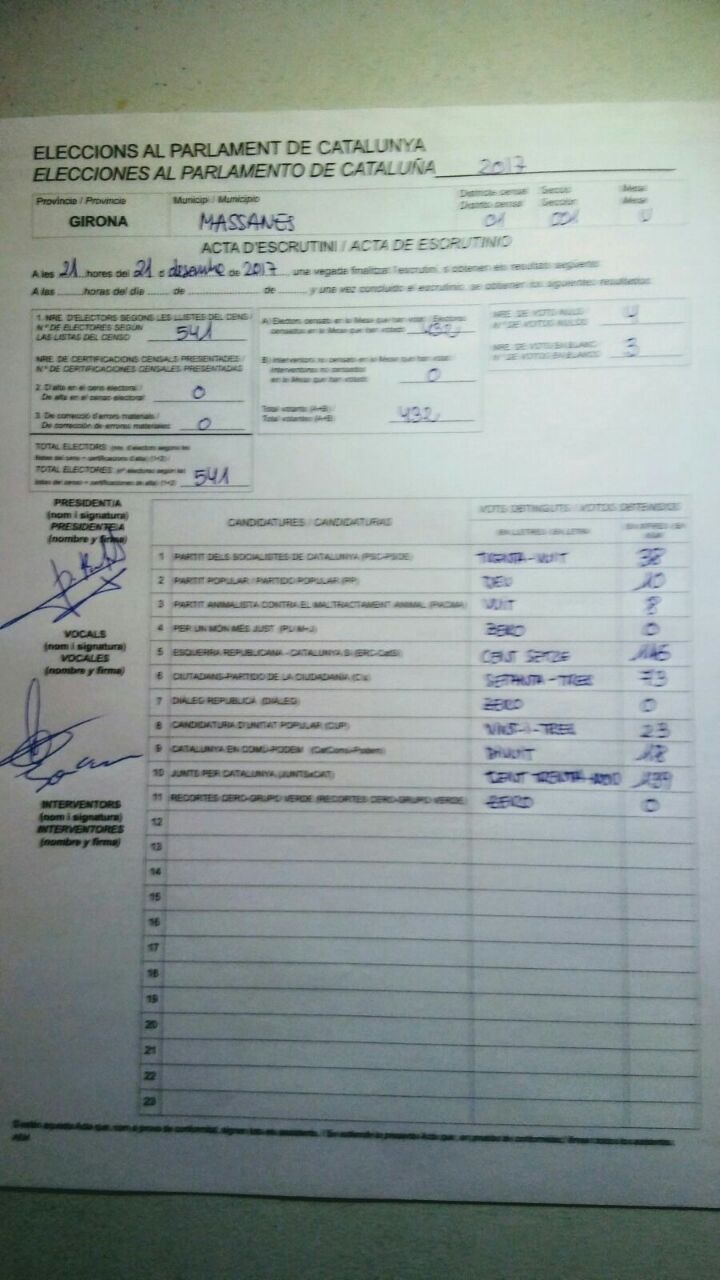 ELECCIONS AL PARLAMENT DE CATALUNYA
ELECCIONES AL PARLAMENTO DE CATALUÑA 2017
Província / Provincia Municipi / Municipio Districte censal Secció Mesa
Distrito censal Sección Mesa
GIRONA MASSANES 01 001 U
ACTA D'ESCRUTINI / ACTA DE ESCRUTINIO
A les 21 hores del 21 d desembre de 2017, una vegada finalitzat l'escrutini, s'obtenen els resultats següents:
A las ........ horas del día ....... de ............... de ........ y una vez concluido el escrutinio, se obtienen los siguientes resultados:
1. NRE. D'ELECTORS SEGONS LES LLISTES DEL CENS /
Nº DE ELECTORES SEGÚN
LAS LISTAS DEL CENSO 541
NRE. DE CERTIFICACIONS CENSALS PRESENTADES /
Nº DE CERTIFICACIONES CENSALES PRESENTADAS
2. D'alta en el cens electoral /
De alta en el censo electoral 0
3. De correcció d'errors materials /
De corrección de errores materiales 0
TOTAL ELECTORS
TOTAL ELECTORES 541
A) Electors censats en la Mesa que han votado / Electores
censados en la Mesa que han votado 432
B) Interventors no censats en la Mesa que han votat /
Interventores no censados
en la Mesa que han votado 0
Total votants (A+B) /
Total votantes (A+B) 432
NRE. DE VOTS NULS /
Nº DE VOTOS NULOS 4
NRE. DE VOTS EN BLANC /
Nº DE VOTOS EN BLANCO 3
PRESIDENT/A
(nom i signatura)
PRESIDENTE/A
(nombre y firma)
VOCALS
(nom i signatura)
VOCALES
(nombre y firma)
INTERVENTORS
(nom i signatura)
INTERVENTORES
(nombre y firma)
CANDIDATURES / CANDIDATURAS VOTS OBTINGUTS / VOTOS OBTENIDOS
EN LLETRES / EN LETRA EN XIFRES / EN
1 PARTIT DELS SOCIALISTES DE CATALUNYA (PSC-PSOE) TRENTA-VUIT 38
2 PARTIT POPULAR / PARTIDO POPULAR (PP) DEU 10
3 PARTIT ANIMALISTA CONTRA EL MALTRACTAMENT ANIMAL (PACMA) VUIT 8
4 PER UN MÓN MÉS JUST (PUM+J) ZERO 0
5 ESQUERRA REPUBLICANA - CATALUNYA SÍ (ERC-CatSí) CENT SETZE 116
6 CIUTADANS-PARTIDO DE LA CIUDADANÍA (C's) SETANTA-TRES 73
7 DIÀLEG REPUBLICÀ (DIÀLEG) ZERO 0
8 CANDIDATURA D'UNITAT POPULAR (CUP) VINT-I-TRES 23
9 CATALUNYA EN COMÚ-PODEM (CatComú-Podem) DIVUIT 18
10 JUNTS PER CATALUNYA (JUNTSxCAT) CENT TRENTA-NOU 139
11 RECORTES CERO-GRUPO VERDE (RECORTES CERO-GRUPO VERDE) ZERO 0
12
13
14
15
16
17
18
19
20
21
22
23